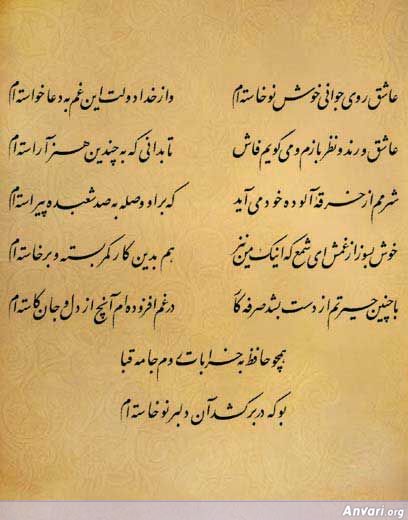 عاشق روی جوانی خوش نوخاسته ام واز خدا دولت این غم به دعا خواسته ام
عاشق و رند و نظر بازم و می گویم فاش تا بدانی که به چندین هنر آراسته ام
شرمم از خرقه آلوده خود می آید که بر او وصله به صد شعبده پیراسته ام
خوش بسوز از غمش ای شمع که اینک من نیز هم بدین کار کمر بسته و برخاسته ام
با چنین حیرتم از دست بشد صرفه کار در غم افزوده ام آنچ از دل و جان کاسته ام
همچو حافظ به خرابات روم جامه قبا
بو که در بر کشد آن دلبر نوخاسته ام
Anvari.org